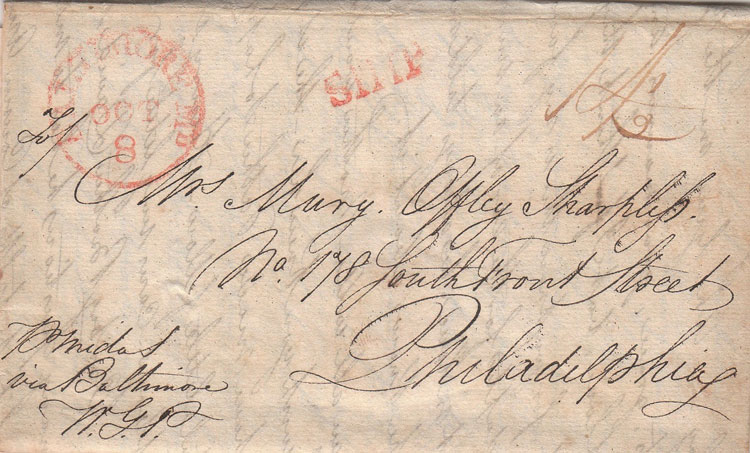 BALTIMORE MD
OCT
8
SHIP
14 1/2
To/
Mrs Mary. Offley Sharpless.
No. 178 South Front Street
Philadelphia
P Midas
via Baltimore
W.G.P.